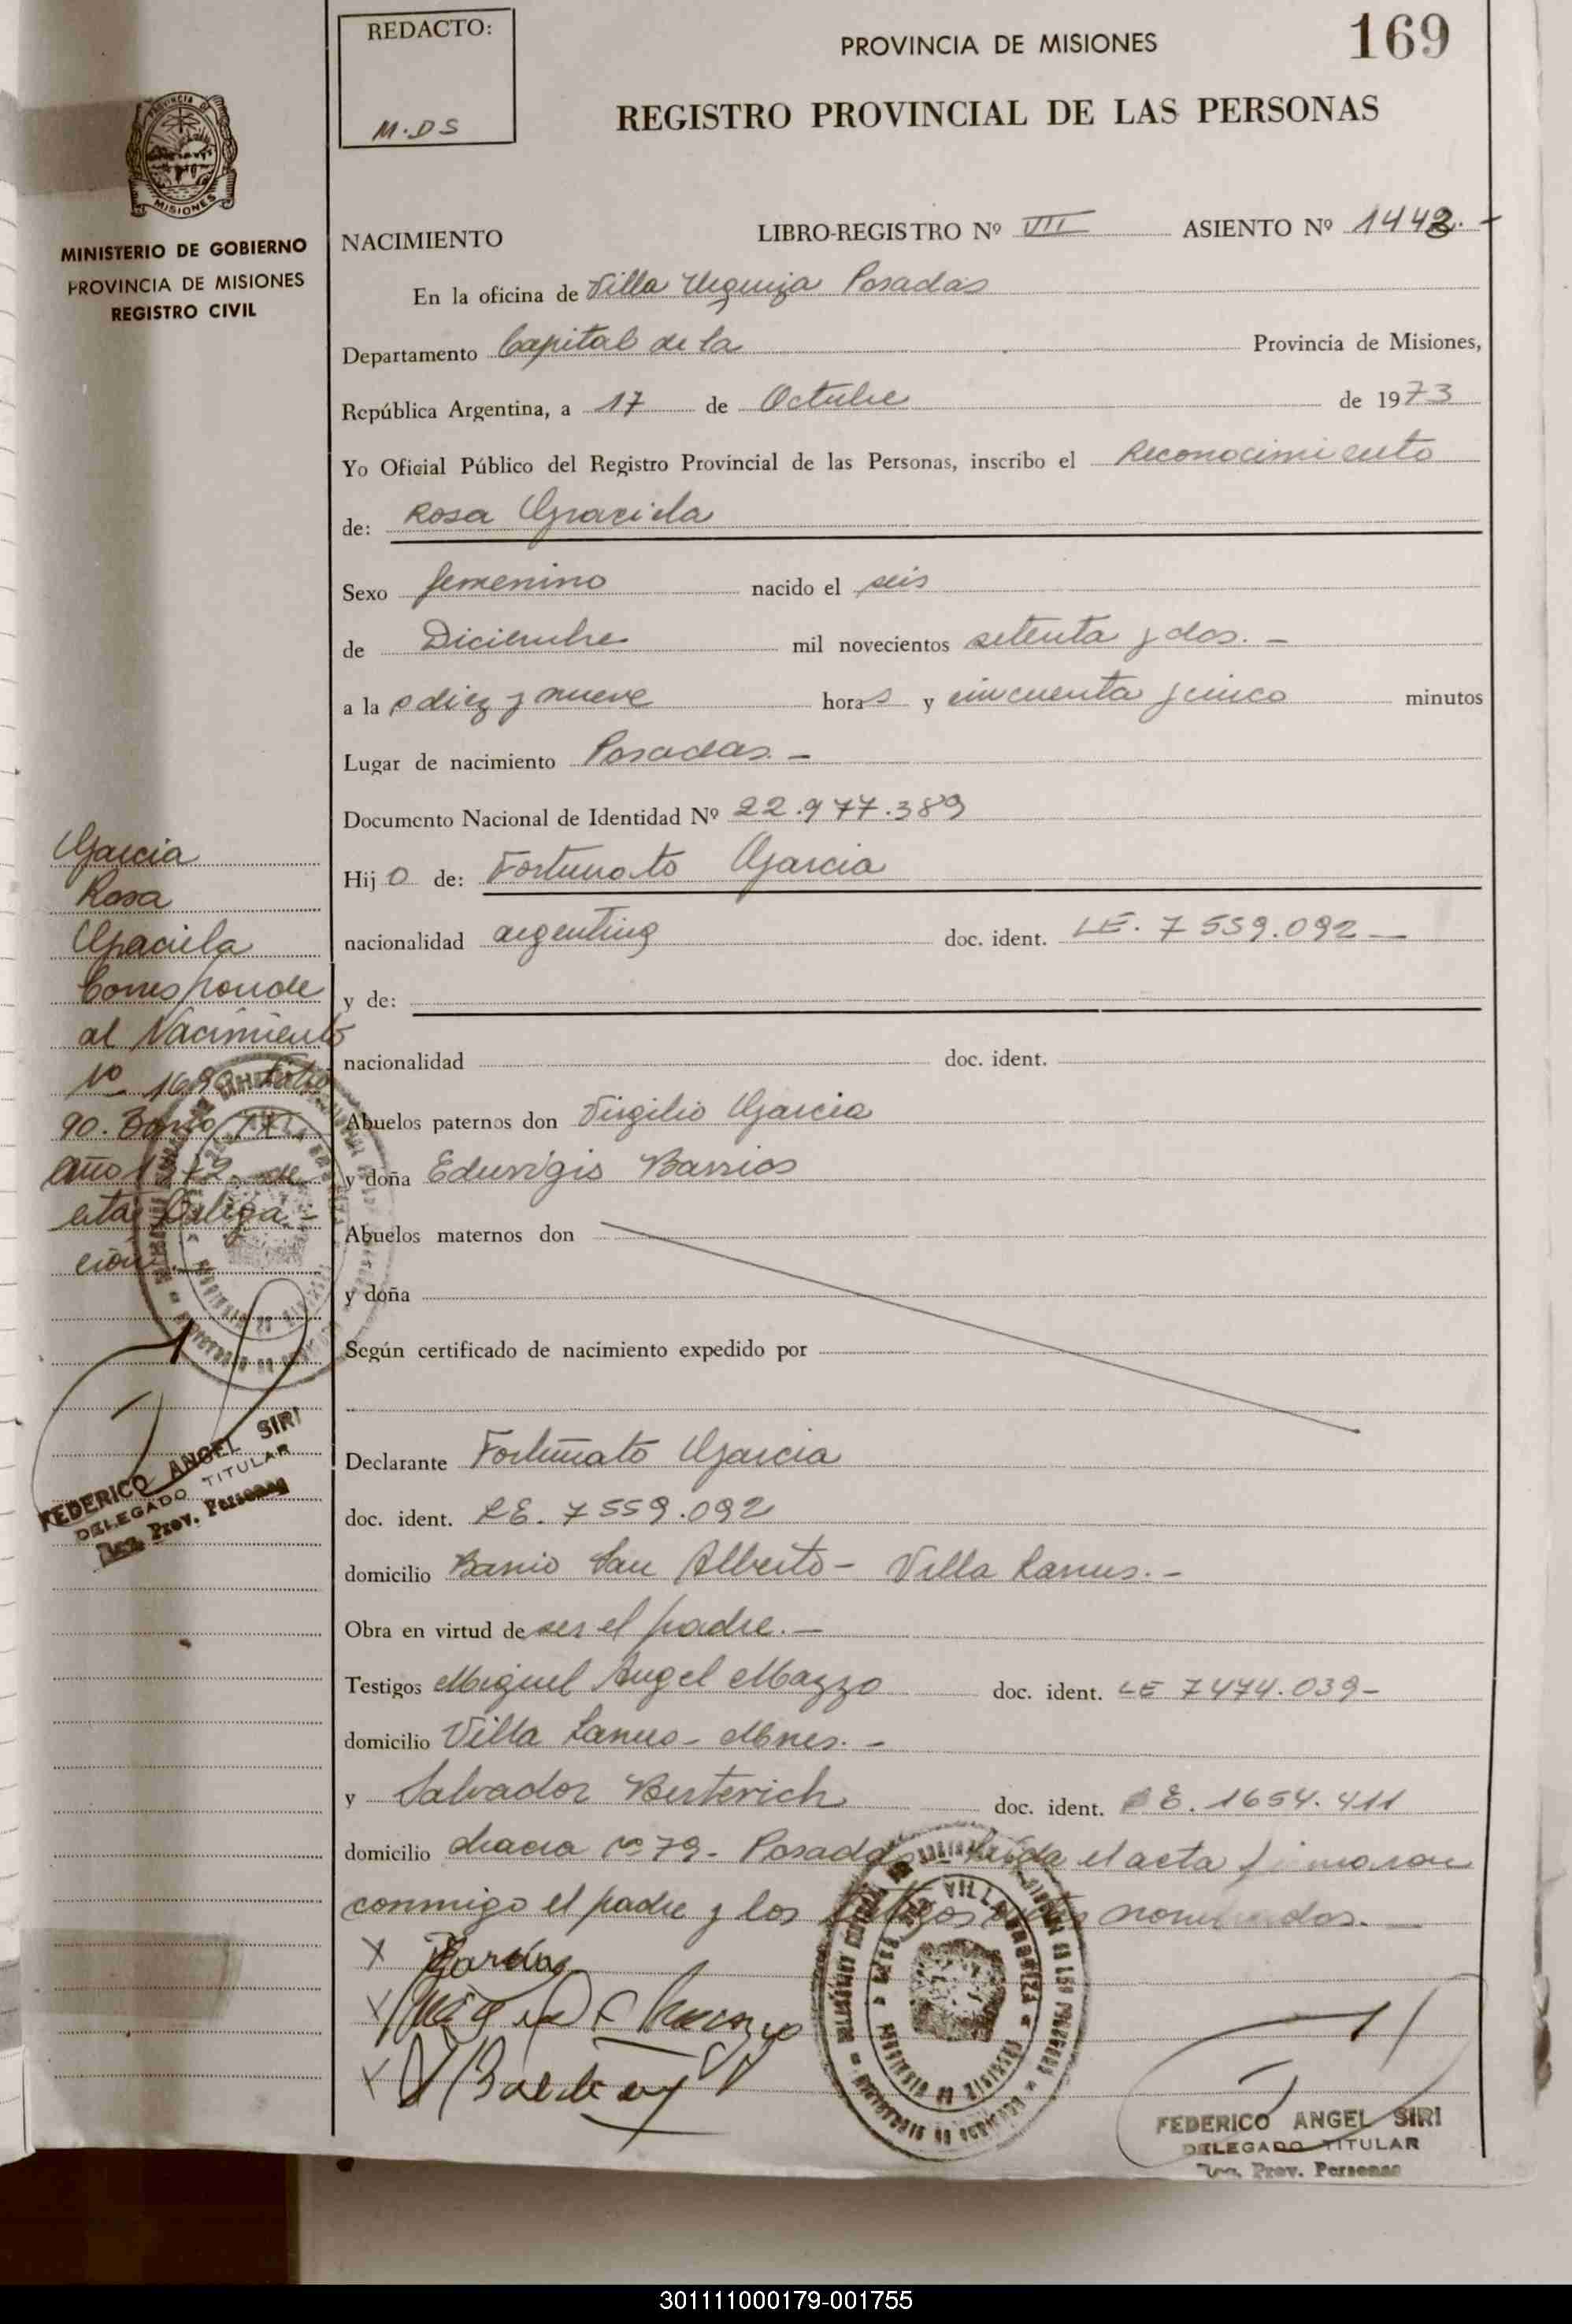 REDACTO:
M.DS
PROVINCIA DE MISIONES
169
REGISTRO PROVINCIAL DE LAS PERSONAS
MISIONES
MINISTERIO DE GOBIERNO
PROVINCIA DE MISIONES
REGISTRO CIVIL
NACIMIENTO LIBRO-REGISTRO Nº VIII ASIENTO Nº 1442.-
En la oficina de Villa Urquiza Posadas
Departamento Capital de la Provincia de Misiones,
República Argentina, a 17 de Octubre de 1973
Yo Oficial Público del Registro Provincial de las Personas, inscribo el Reconocimiento
de: Rosa Graciela
Sexo femenino nacido el seis
de Diciembre mil novecientos setenta y dos.-
a la s diez y nueve horas y cincuenta y cinco minutos
Lugar de nacimiento Posadas.-
Documento Nacional de Identidad Nº 22.977.389
Hijo de: Fortunato Garcia
nacionalidad argentina doc. ident. LE. 7559.092-
y de:
nacionalidad doc. ident.
Abuelos paternos don Virgilio Garcia
y doña Eduvigis Barrios
Abuelos maternos don
y doña
Según certificado de nacimiento expedido por
Declarante Fortunato Garcia
doc. ident. LE. 7559.092
domicilio Barrio San Alberto - Villa Lanus.-
Obra en virtud de ser el padre.-
Testigos Miguel Angel Mazzo doc. ident. LE 7474.039-
domicilio Villa Lanus - Mnes.-
y Salvador Berterich doc. ident. LE. 1654.411
domicilio chacra nº 79 - Posadas - Leida el acta firmaron
conmigo el padre y los testigos nombrados.-
X Garcia
X
X
Garcia
Rosa
Graciela
Corresponde
al Nacimiento
Nº 1690 Folio
90. Tomo IX
Año 1972 de
esta Delega-
ción.-
FEDERICO ANGEL SIRI
DELEGADO TITULAR
Reg. Prov. Personas
FEDERICO ANGEL SIRI
DELEGADO TITULAR
Reg. Prov. Personas
301111000179-001755